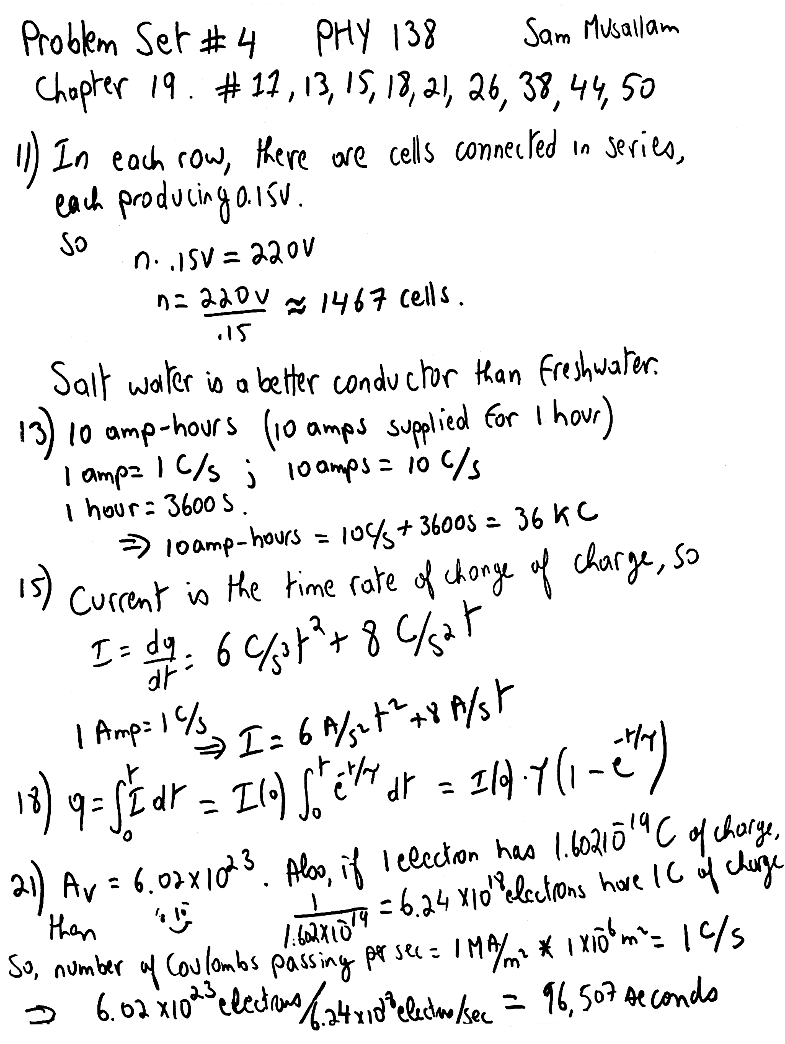 Problem Set # 4 PHY 138 Sam Musallam
Chapter 19. # 11, 13, 15, 18, 21, 26, 38, 44, 50
11) In each row, there are cells connected in series,
each producing 0.15V.
So
n · .15V = 220V
n = 220V/.15 ≈ 1467 cells.
Salt water is a better conductor than freshwater.
13) 10 amp-hours (10 amps supplied for 1 hour)
1 amp = 1 C/s ; 10 amps = 10 C/s
1 hour = 3600 S.
⇒ 10 amp-hours = 10 C/s + 3600s = 36 KC
15) Current is the time rate of change of charge, so
I = dq/dt = 6 C/s³ t² + 8 C/s² t
1 Amp = 1 C/s ⇒ I = 6 A/s² t² + 8 A/s t
18) q = ∫₀ᵗ I dt = I(0) ∫₀ᵗ e^(-t/γ) dt = I(0) · γ (1 - e^(-t/γ))
21) Av = 6.02 × 10²³. Also, if 1 electron has 1.602 10⁻¹⁹ C of charge,
than 1/1.602×10⁻¹⁹ = 6.24 × 10¹⁸ electrons have 1C of charge
So, number of Coulombs passing per sec = 1 MA/m² * 1×10⁻⁶ m² = 1 C/s
⇒ 6.02 × 10²³ electrons/6.24×10¹⁸ electrons/sec = 96,507 seconds